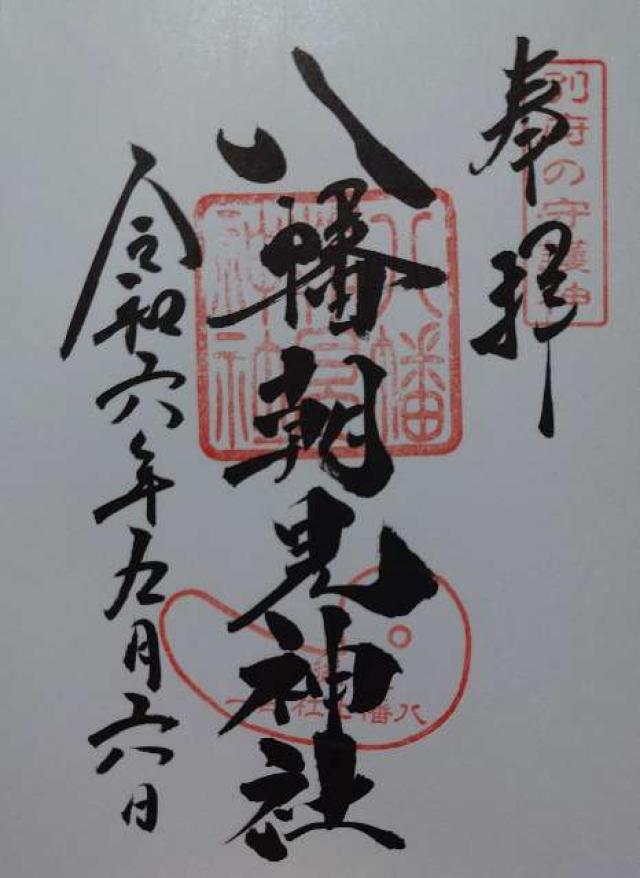 奉拝
別府の守護神
八幡朝見神社
八幡朝見神社
令和六年九月六日